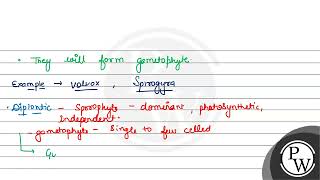 • They will form gametophyte.
Example → volvox, Spirogyra
• Diplontic - Sporophyte - dominant, photosynthetic,
independent.
- gametophyte - Single to few celled
Gu
PW